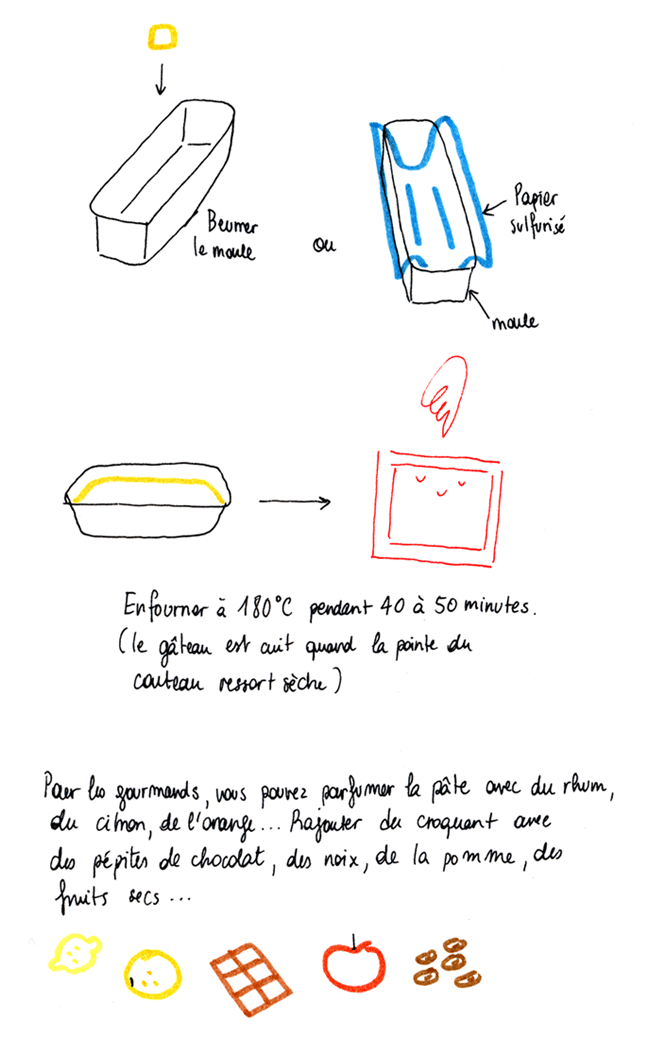 Beurrer
le moule
ou
Papier
sulfurisé
moule
Enfourner à 180°C pendant 40 à 50 minutes.
(le gâteau est cuit quand la pointe du
couteau ressort sèche)
Pour les gourmands, vous pouvez parfumer la pâte avec du rhum,
du citron, de l'orange... Rajouter du croquant avec
des pépites de chocolat, des noix, de la pomme, des
fruits secs...